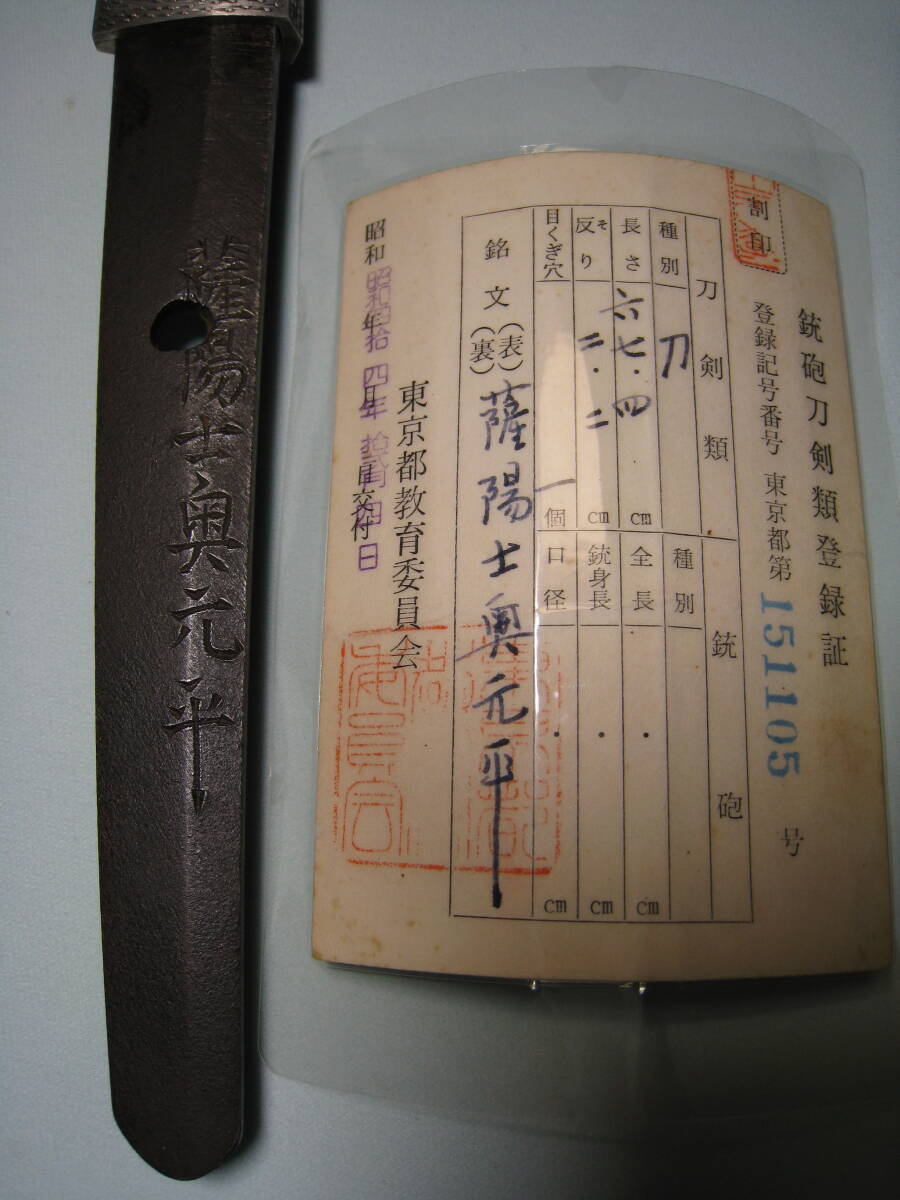 薩陽士奥元平
割印
銃砲刀剣類登録証
登録記号番号 東京都第 151105 号
刀剣類
種別 刀
長さ 六七・四 cm
反り そ 二・二 cm
目くぎ穴 一個
銃砲
種別
全長 ・ cm
銃身長 ・ cm
口径 ・ cm
銘文 (表) 薩陽士奥元平
(裏)
東京都教育委員会
昭和 年 月 日交付